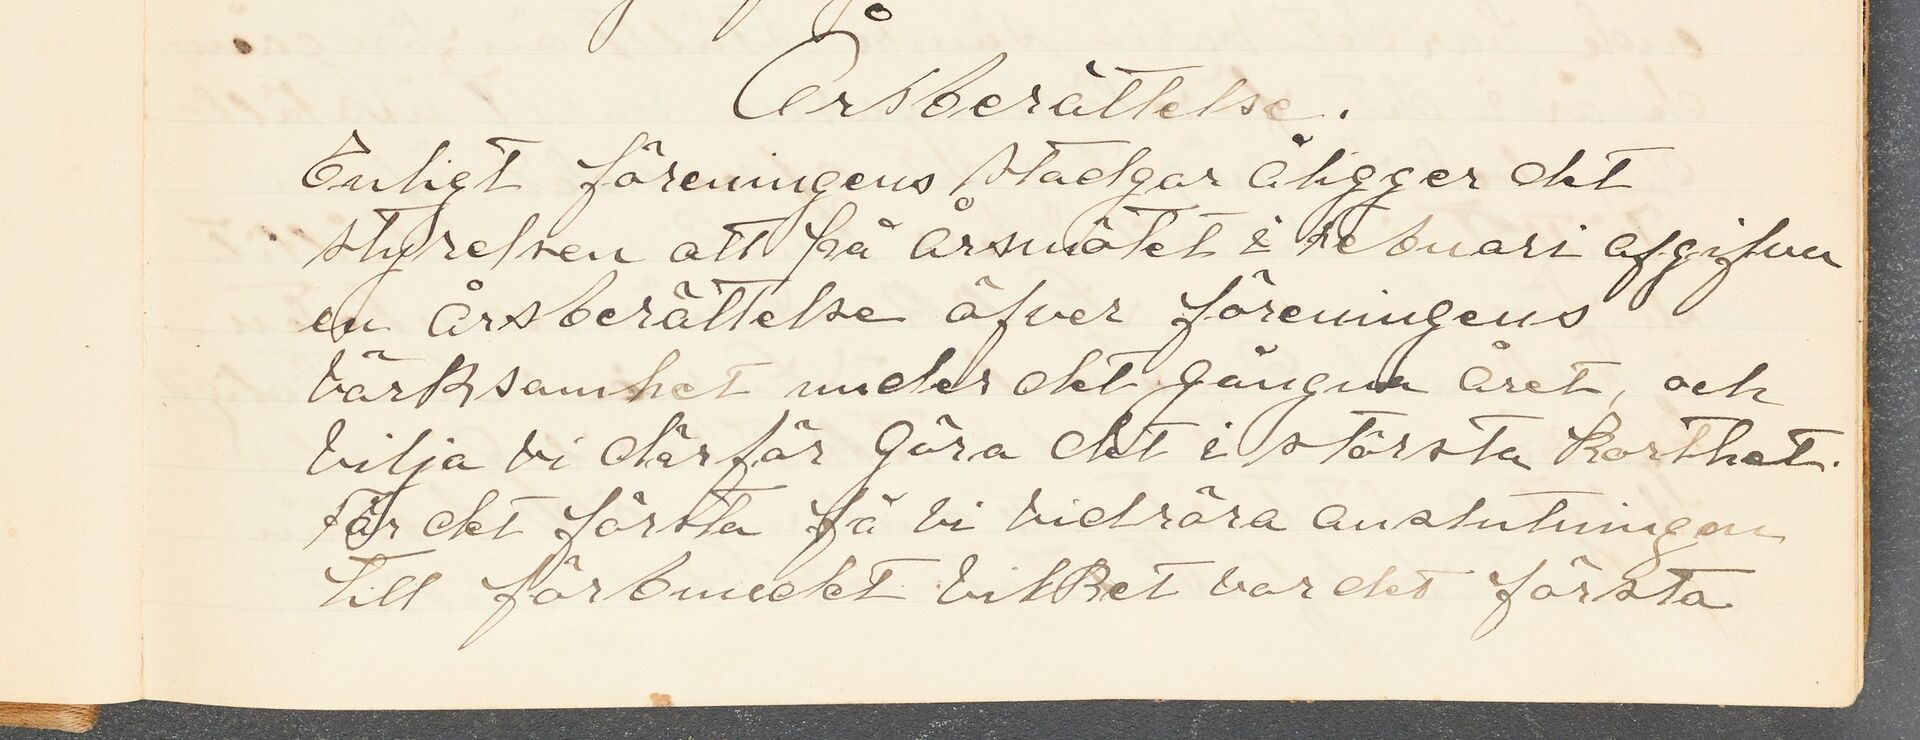 Årsberättelse.
Enligt föreningens stadgar åligger det
styrelsen att på årsmötet i febuari afgifva
en årsberättelse öfver föreningens
värksamhet under det gångna året, och
vilja vi därför göra det i största korthet.
För det första få vi vidröra anslutningen
till förbundet vilket var det första